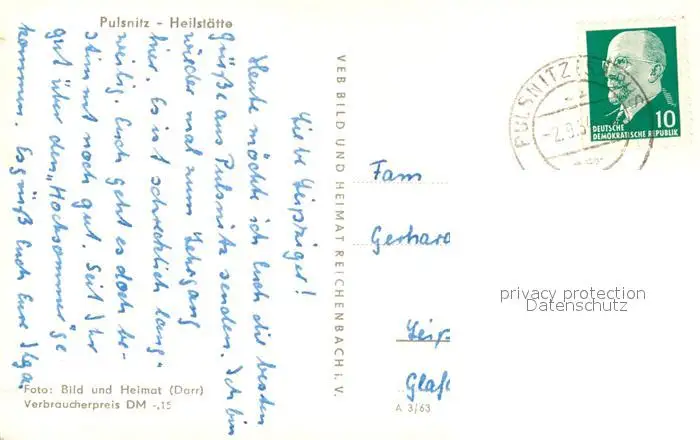 Pulsnitz - Heilstätte
Liebe Leipziger!
Heute möchte ich Euch die besten
Grüße aus Pulsnitz senden. Ich bin
wieder mal zum Lehrgang
hier. Es ist schrecklich lang-
weilig. Euch geht es doch be-
stimmt noch gut. Seid Ihr
gut über den "Hochsommer" ge
kommen. Es grüßt Euch Eure Ilga.
Foto: Bild und Heimat (Darr)
Verbraucherpreis DM -,15
VEB BILD UND HEIMAT REICHENBACH i. V.
A 3/63
Fam
Gerhard
Leip
Glaf
PULSNITZ (SACHS
-2.9.6
10
DEUTSCHE
DEMOKRATISCHE REPUBLIK
privacy protection
Datenschutz